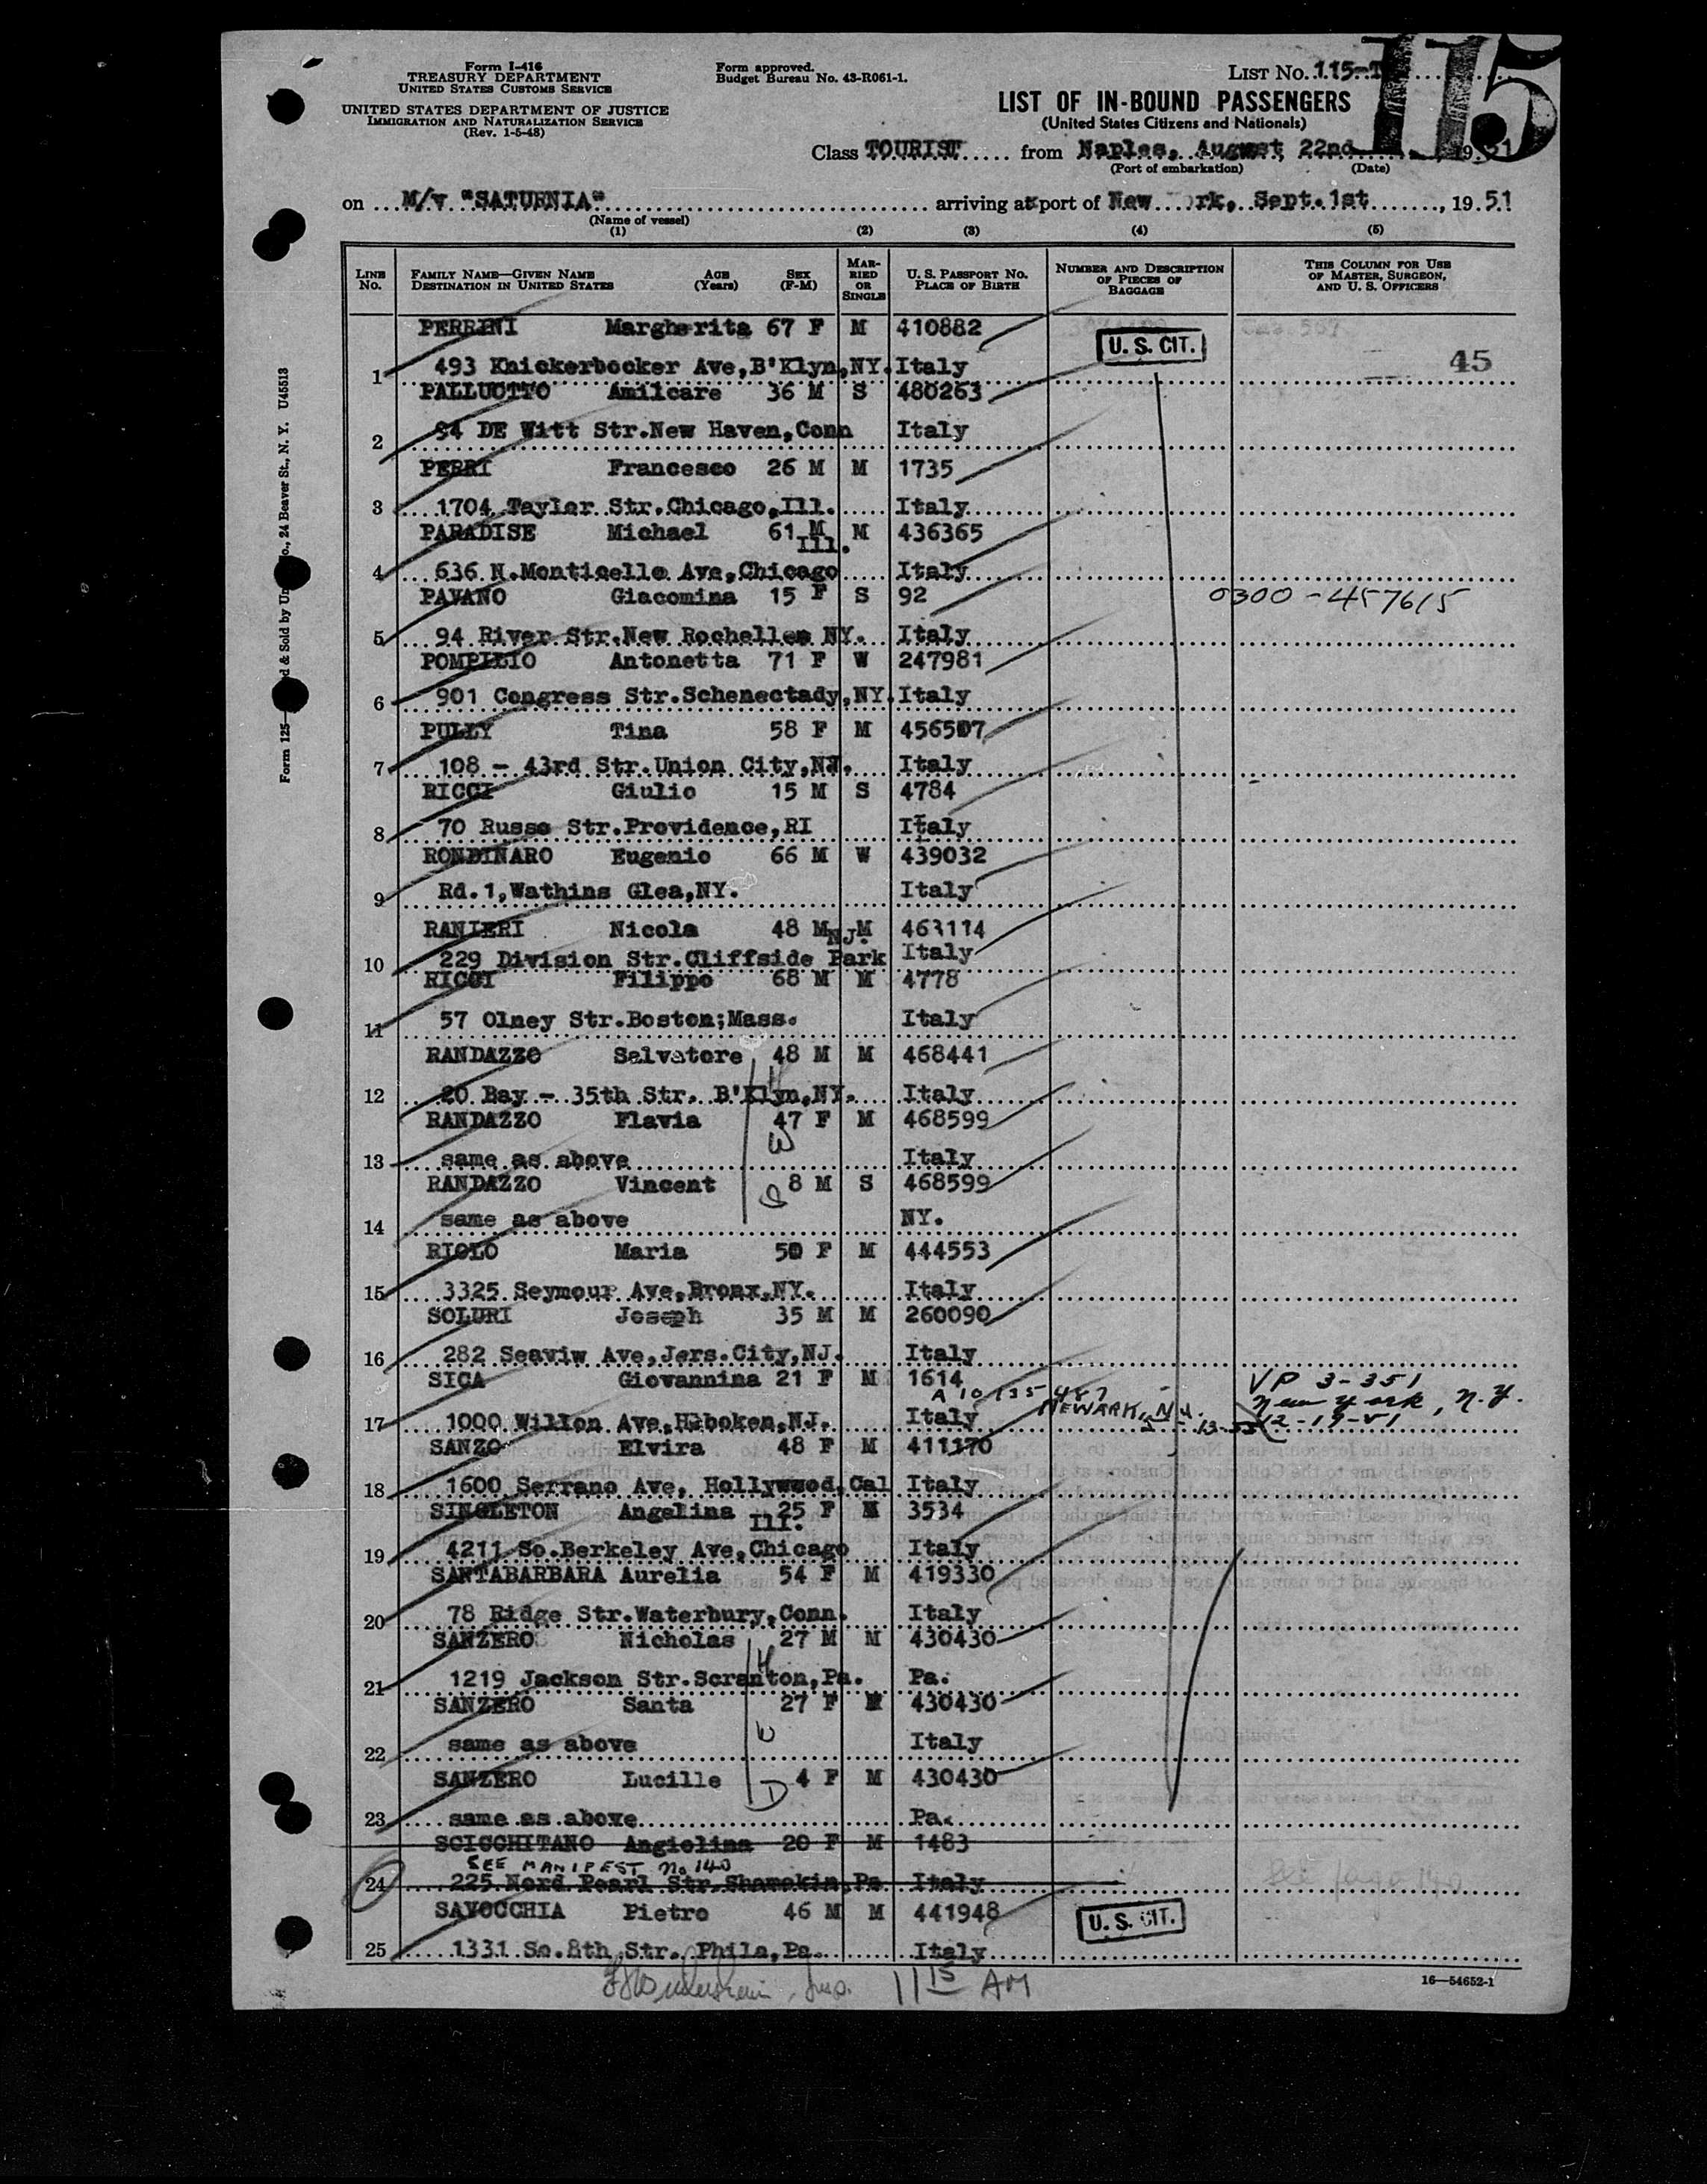 Form I-416
TREASURY DEPARTMENT
UNITED STATES CUSTOMS SERVICE
UNITED STATES DEPARTMENT OF JUSTICE
IMMIGRATION AND NATURALIZATION SERVICE
(Rev. 1-5-48)
Form approved.
Budget Bureau No. 43-R061-1.
LIST NO. 115-T
115
LIST OF IN-BOUND PASSENGERS
(United States Citizens and Nationals)
Class TOURIST from Naples, August 22nd, 1951
(Port of embarkation) (Date)
on M/v "SATURNIA" arriving at port of New rk, Sept.1st, 1951
(Name of vessel)
(1) (2) (3) (4) (5)
LINE NO. FAMILY NAME—GIVEN NAME DESTINATION IN UNITED STATES AGE (Years) SEX (F-M) MARRIED OR SINGLE U. S. PASSPORT NO. PLACE OF BIRTH NUMBER AND DESCRIPTION OF PIECES OF BAGGAGE THIS COLUMN FOR USE OF MASTER, SURGEON, AND U. S. OFFICERS
PERRINI Margherita 67 F M 410882
U. S. CIT.
1 493 Knickerbocker Ave,B'Klyn,NY. Italy 45
PALLUOTTO Amilcare 36 M S 480263
2 94 DE Witt Str.New Haven,Conn Italy
PERRI Francesco 26 M M 1735
3 1704 Taylor Str.Chicago,Ill. Italy
PARADISE Michael 61 M M 436365
Ill.
4 636 N.Monticello Ave,Chicago Italy
PAVANO Giacomina 15 F S 92 0300-457615
5 94 River Str.New Rochellem NY. Italy
POMPILIO Antonetta 71 F W 247981
6 901 Congress Str.Schenectady,NY. Italy
PULLY Tina 58 F M 456507
7 108 - 43rd Str.Union City,NJ. Italy
RICCI Giulio 15 M S 4784
8 70 Russo Str.Providence,RI Italy
RONDINARO Eugenio 66 M W 439032
9 Rd.1,Wathins Glea,NY. Italy
RANIERI Nicola 48 M M 463114
NJ.
10 229 Division Str.Cliffside Park Italy
RICCI Filippo 68 M M 4778
11 57 Olney Str.Boston;Mass. Italy
RANDAZZO Salvatore 48 M M 468441
H
12 20 Bay - 35th Str. B'Klyn,NY. Italy
RANDAZZO Flavia 47 F M 468599
W
13 same as above Italy
RANDAZZO Vincent 8 M S 468599
S
14 same as above NY.
RIOLO Maria 50 F M 444553
15 3325 Seymour Ave,Bronx,NY. Italy
SOLURI Joseph 35 M M 260090
16 282 Seaviw Ave,Jers.City,NJ. Italy
SICA Giovannina 21 F M 1614 VP 3-351
A 10 135 487 New York, N.Y.
17 1000 Wilton Ave,Hoboken,NJ. Italy NEWARK, N.J. 12-19-51
SANZO Elvira 48 F M 411170
18 1600 Serrano Ave, Hollywood,Cal Italy
SINGLETON Angelina 25 F M 3534
Ill.
19 4211 So.Berkeley Ave,Chicago Italy
SANTABARBARA Aurelia 54 F M 419330
20 78 Ridge Str.Waterbury,Conn. Italy
SANZERO Nicholas 27 M M 430430
H
21 1219 Jackson Str.Scranton,Pa. Pa.
SANZERO Santa 27 F M 430430
W
22 same as above Italy
SANZERO Lucille 4 F M 430430
D
23 same as above Pa.
SCICCHITANO Angiolina 20 F M 1483
SEE MANIFEST No 140
24 225 Nord Pearl Str.Shamokin,Pa Italy See page 140
SAVOCCHIA Pietro 46 M M 441948
U. S. CIT.
25 1331 So.8th Str. Phila,Pa. Italy
11 15 AM
16—54652-1
Form 125 d & Sold by Un o., 24 Beaver St., N. Y. U45513